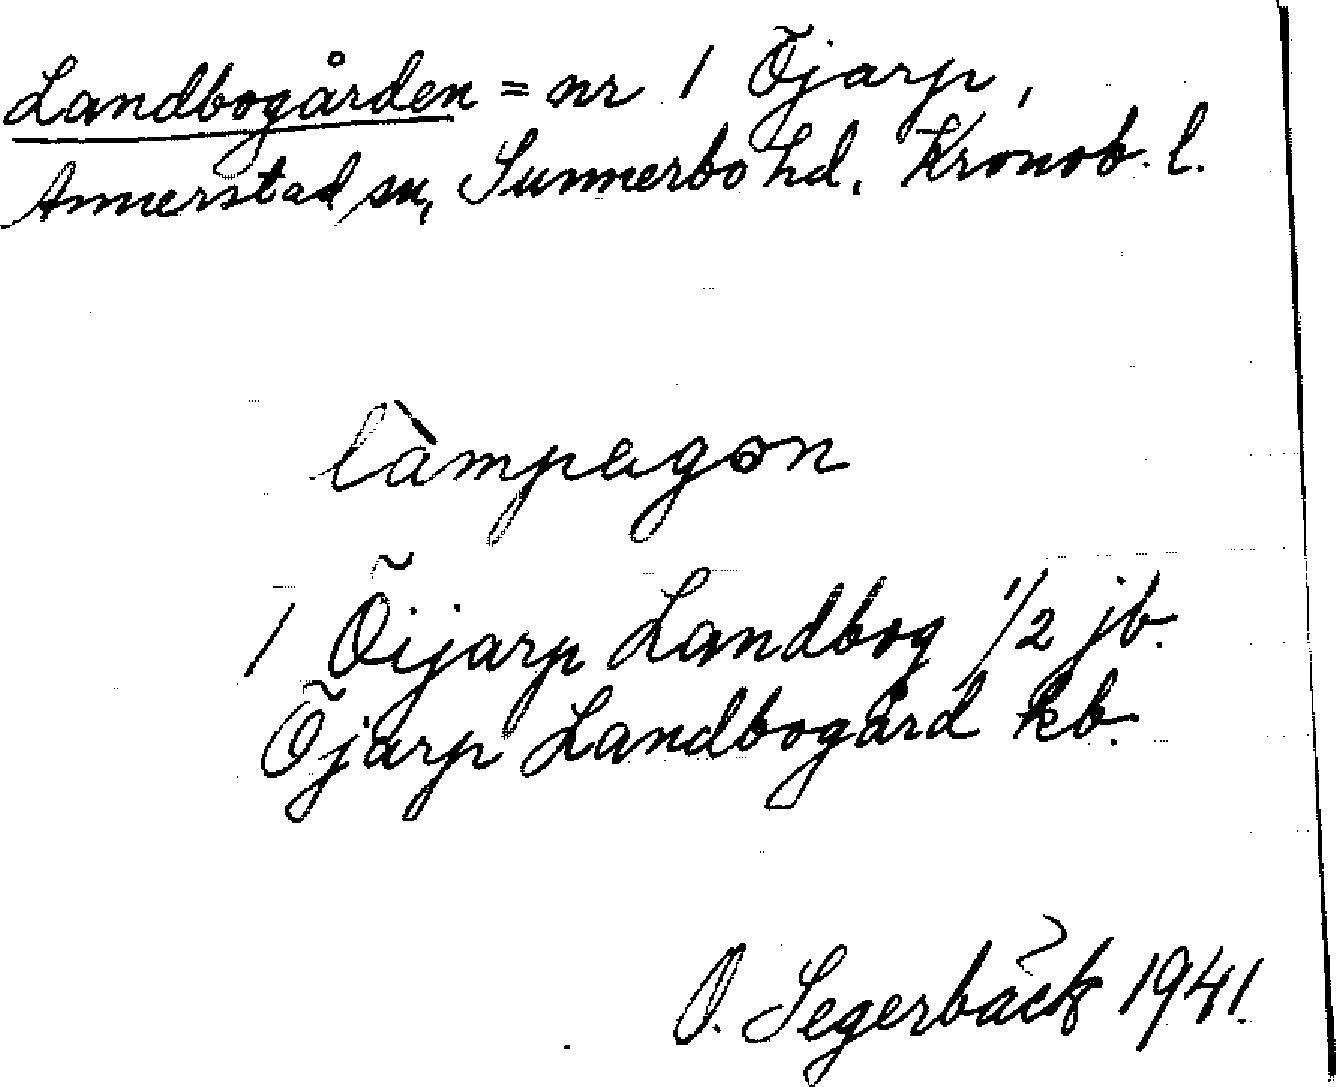 Landbogården = nr 1 Öjarp,
Annerstad sn, Sunnerbo hd, Kronob. l.
làmpagon
1 Öijarp Landbog 1/2 jb.
Öjarp Landbogård kb.
O. Segerbäck 1941.